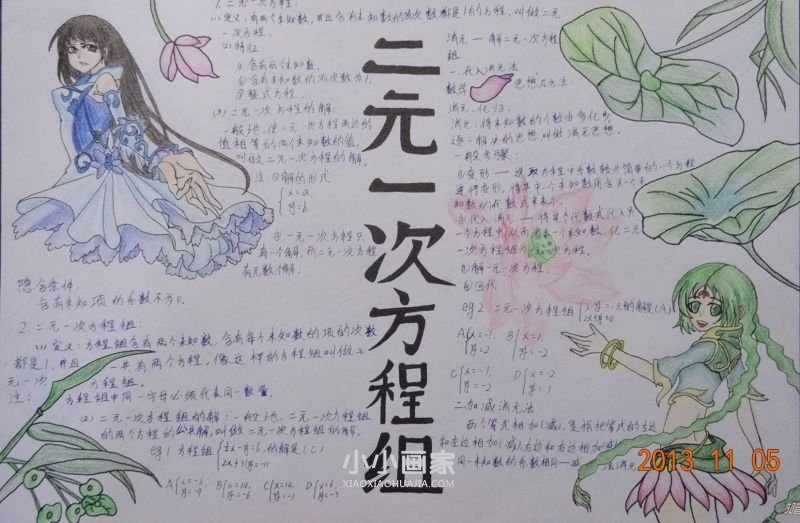 1.二元一次方程:
(1)定义:有两个未知数,并且含有未知数的项次数都是1的方程,叫做二元
一次方程.
(2)特征:
①含有两个未知数.
②含有未知数的项次数为1.
③整式方程.
(3)二元一次方程的解:
一般地,使二元一次方程两边的
值相等的两个未知数的值,
叫做二元一次方程的解.
注:①解的形式
{x=a,
y=b
②一元一次方程只
有一个解,而二元一次方程
有无数个解.
隐含条件:
含有未知项的系数不为0.
2.二元一次方程组:
(1)定义:方程组含有两个未知数,含有每个未知数的项的次数
都是1,并且一共有两个方程,像这样的方程组叫做二
元一次方程组.
注:方程组中同一字母必须代表同一数量.
(2)二元一次方程组的解:一般地,二元一次方程组
的两个方程的公共解,叫做二元一次方程组的解.
eg1:方程组 的解是(C)
二元一次方程组
消元——解二元一次方程
组
一.代入消元法
数学思想及方法:
消元、化归.
消元:将未知数的个数由多化少,
逐一解决的思想,叫做消元思想.
一般步骤:
①变形——选取方程中系数较为简单的一个方程
进行变形,将其中一个未知数用含另一个未
知数的代数式来表示.
②代入消元——将这个代数式代入另
一个方程中,从而消去一个未知数,化二元
一次方程组为一元一次方程.
③解一元一次方程.
④回代
eg2 二元一次方程组 的解是(A)
A{x=-1, y=2 B{x=1, y=-2
C{x=-1, y=-2 D{x=-2 y=1
二.加减消元法
两个等式相加(减),是指把等式的左边
和左边相加(减),右边和右边相加(减)
同一未知数的系数相同
小小画家
XIAOXIAOHUAJIA.COM
2013 11 05